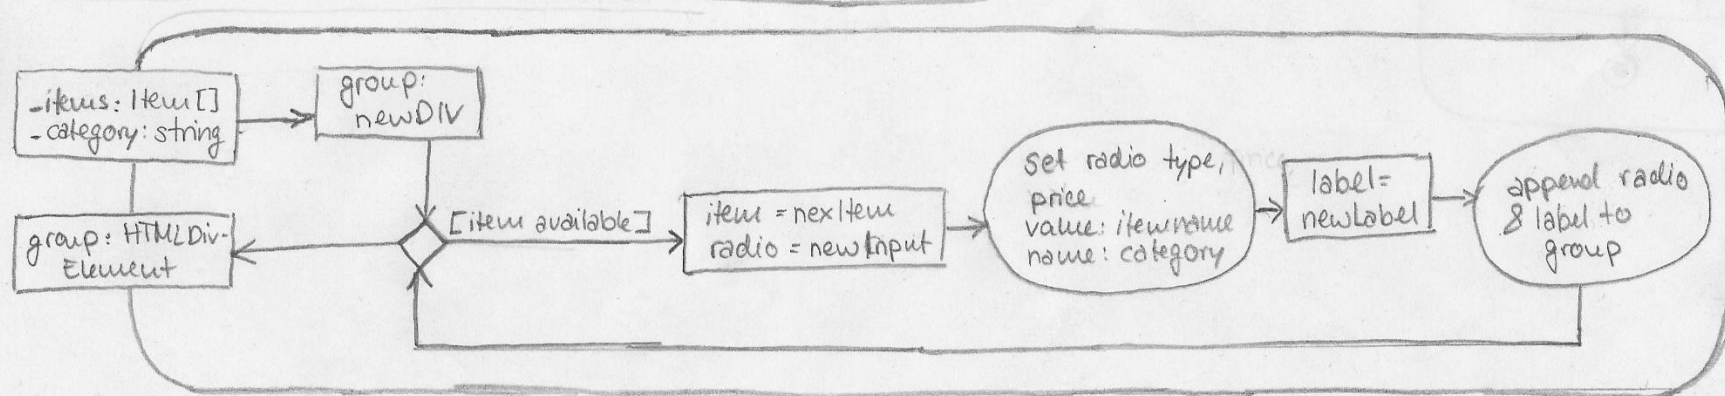 -items: Item[]
-category: string
group:
newDIV
group: HTMLDiv-
Element
[item available]
item = nexItem
radio = newInput
set radio type,
price
value: itemname
name: category
label=
newLabel
append radio
& label to
group